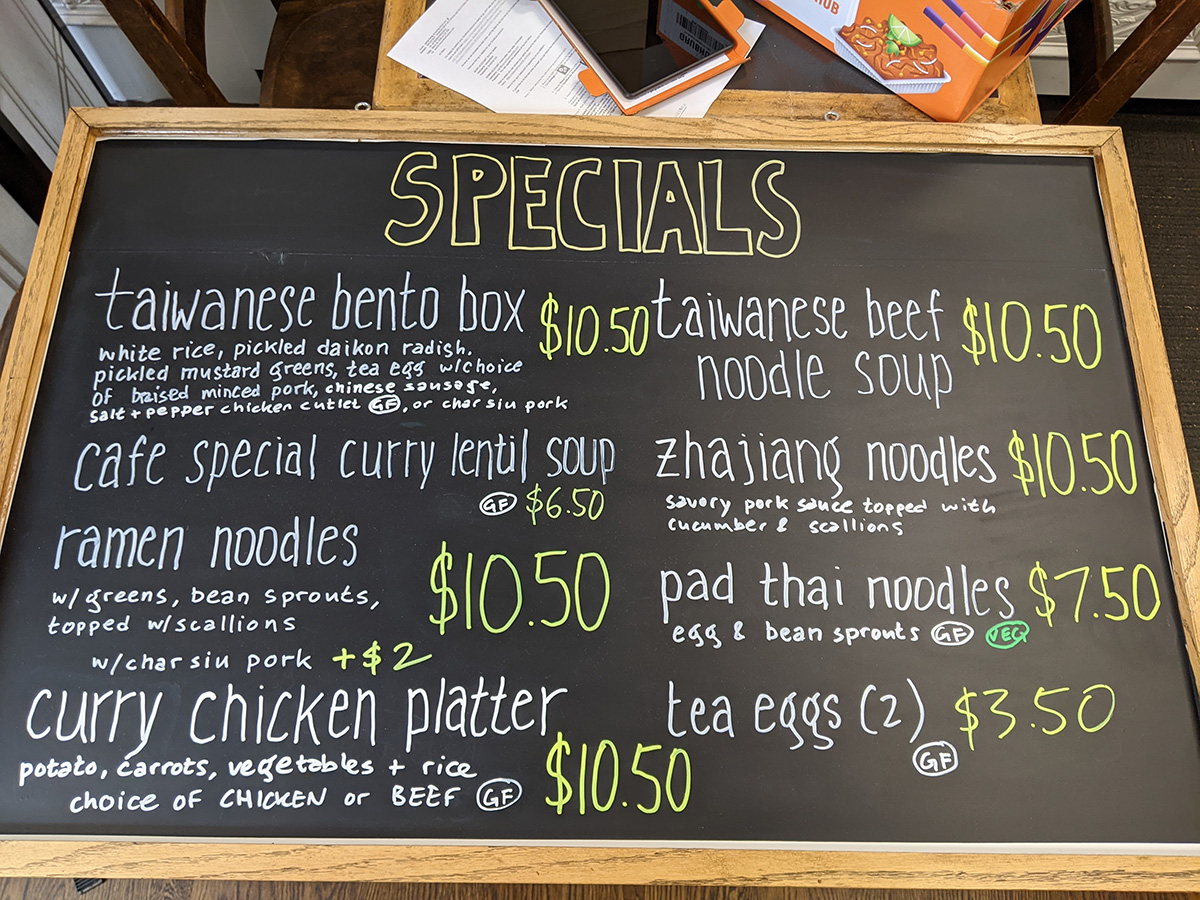 SPECIALS
taiwanese bento box $10.50
white rice, pickled daikon radish.
pickled mustard greens, tea egg w/choice
of braised minced pork, chinese sausage,
salt + pepper chicken cutlet GF, or char siu pork
cafe special curry lentil soup
GF $6.50
ramen noodles
$10.50
w/greens, bean sprouts,
topped w/scallions
w/char siu pork +$2
curry chicken platter
$10.50
potato, carrots, vegetables + rice
choice of CHICKEN or BEEF GF
taiwanese beef $10.50
noodle soup
zhajiang noodles $10.50
savory pork sauce topped with
cucumber & scallions
pad thai noodles $7.50
egg & bean sprouts GF VEG
tea eggs (2) $3.50
GF
HUB